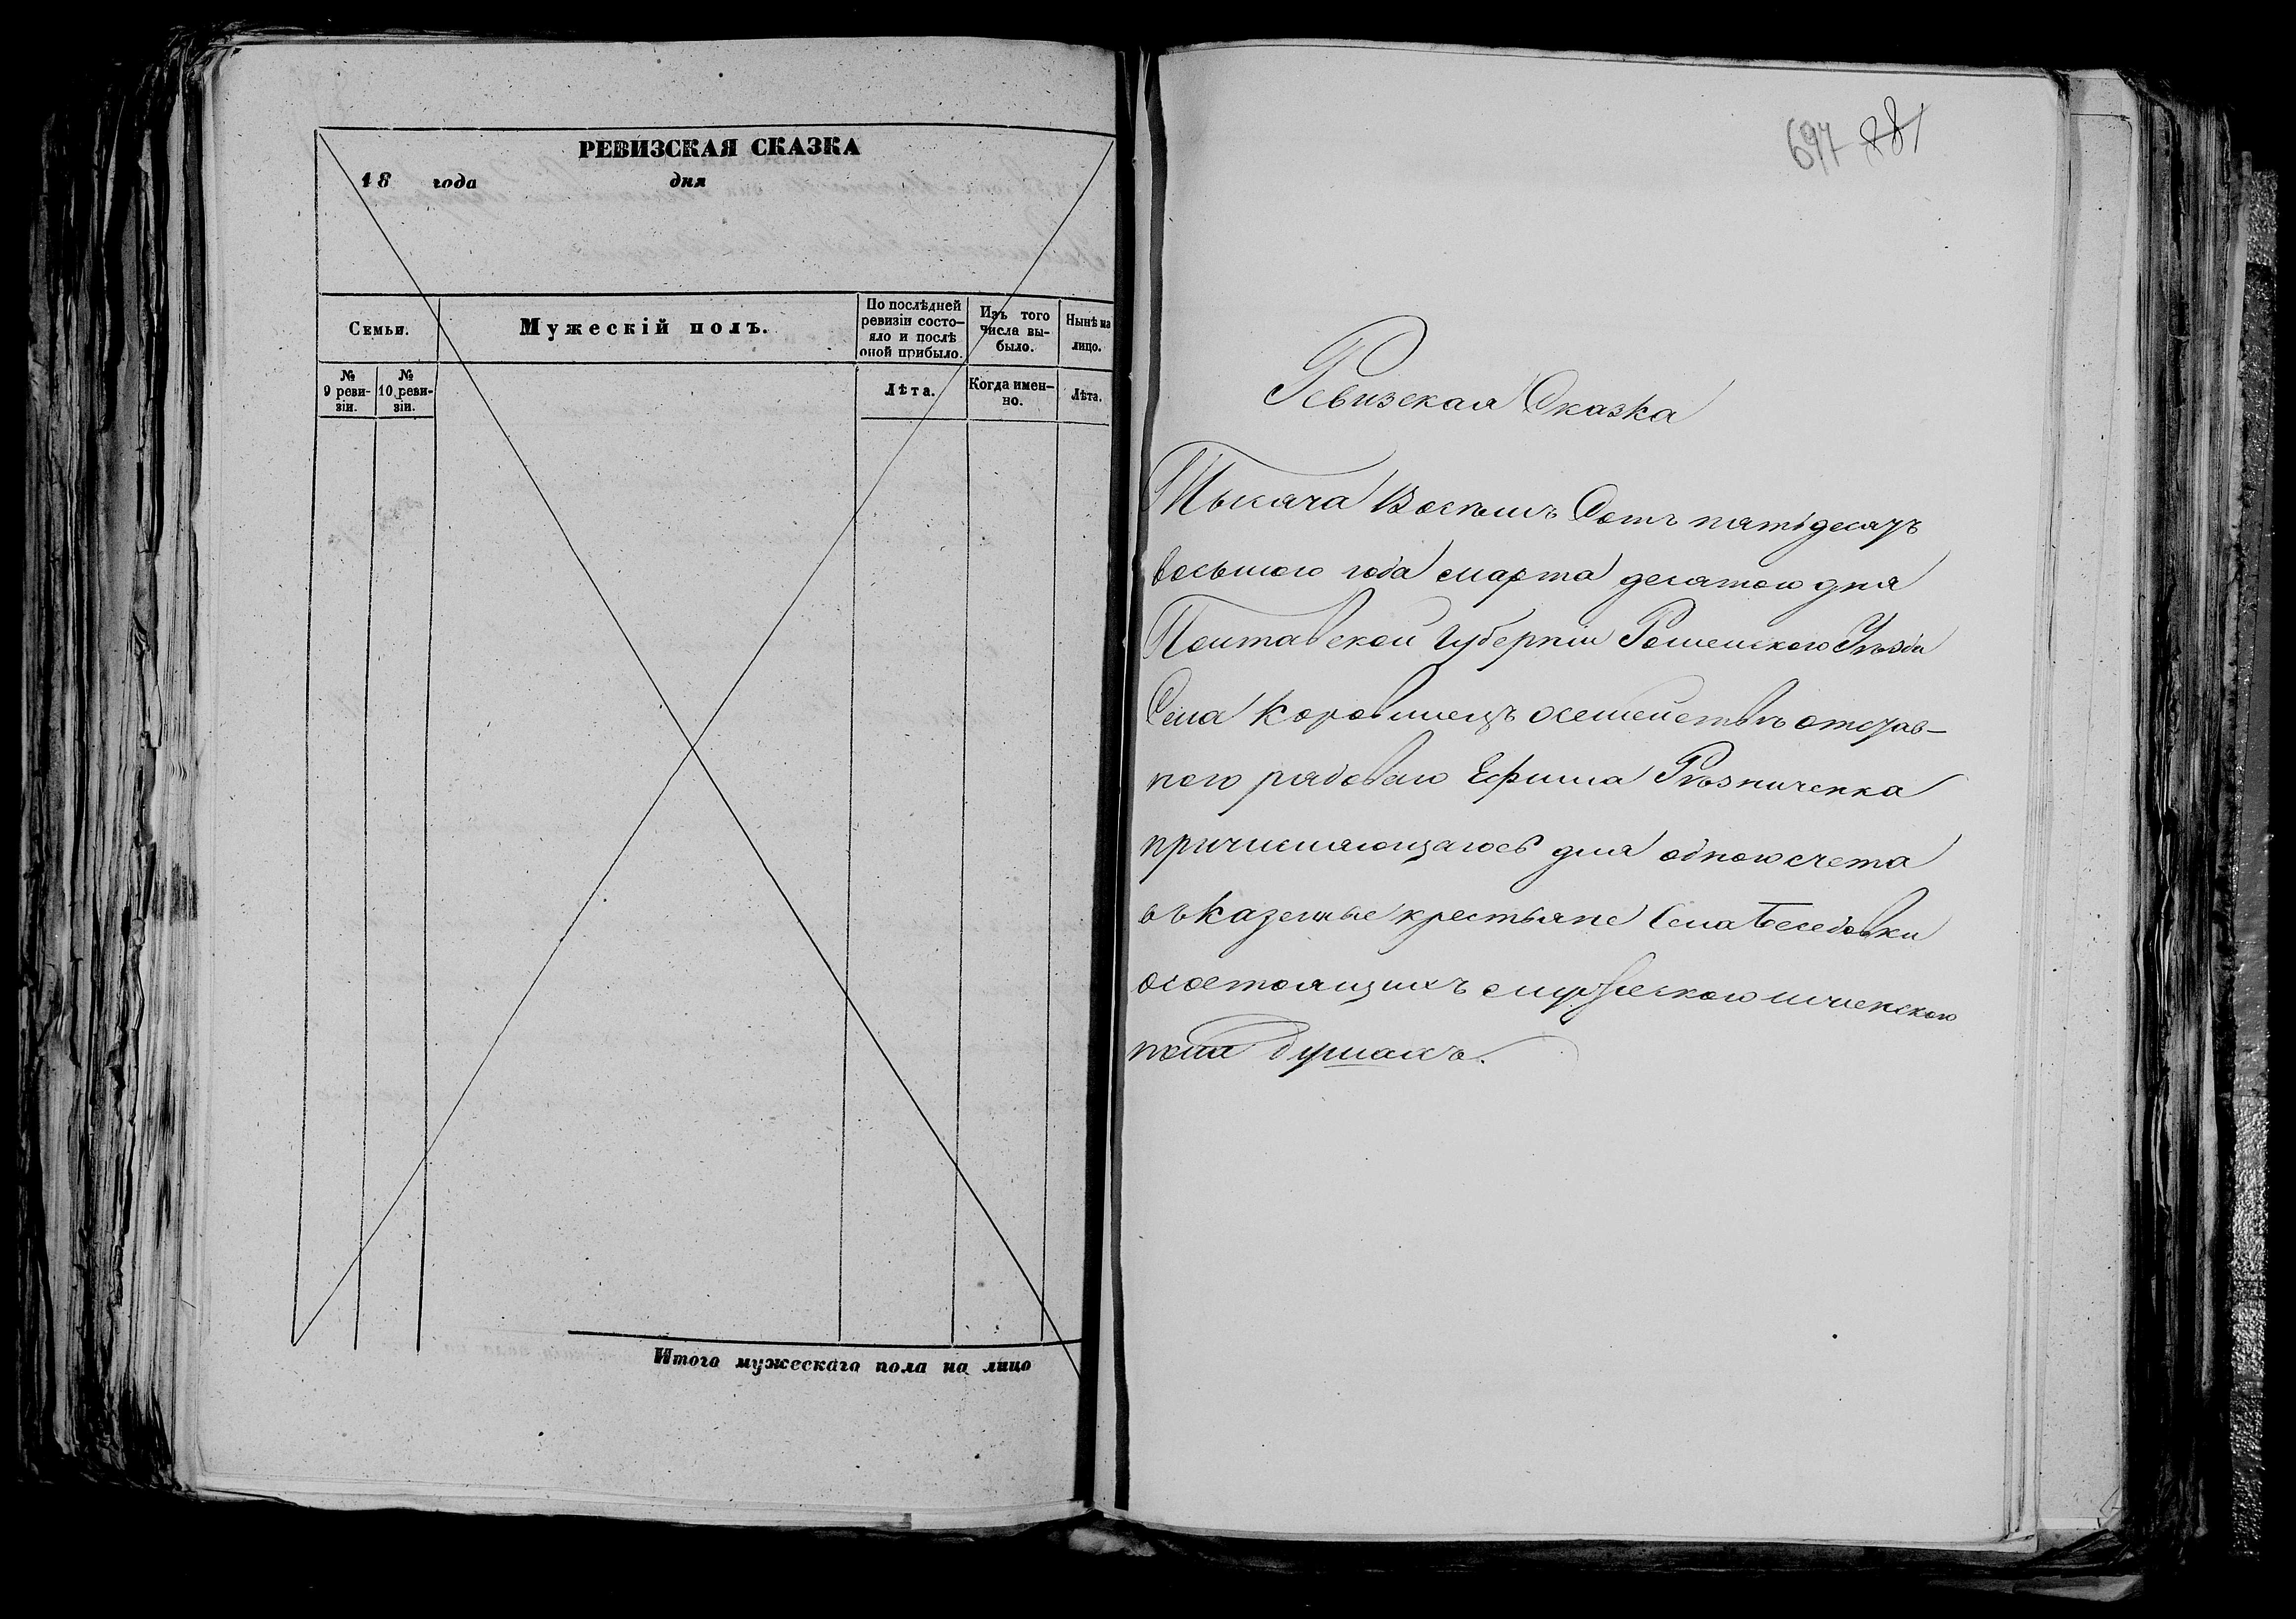 РЕВИЗСКАЯ СКАЗКА
18 года дня
Семьи.
Мужескій полъ.
По послѣдней ревизіи состо-
яло и послѣ оной прибыло.
Изъ того числа вы-
было.
Нынѣ на лицо.
№ 9 реви-
зіи.
№ 10 реви-
зіи.
Лѣта.
Когда имен-
но.
Лѣта.
Итого мужескаго пола на лицо
697 281
Ревизская Сказка
Тысяча Восемь Сотъ пятьдесятъ
восьмого года марта десятого дня
Полтавской Губерніи Роменского Уѣзда
Села Коровинецъ осемействѣ отстав-
ного рядоваго Ефима Рѣзниченка
причисляющагось для одного счета
въ казенные крестьяне Села Беседовки
осостоящихъ мужеского и женского
пола душахъ.